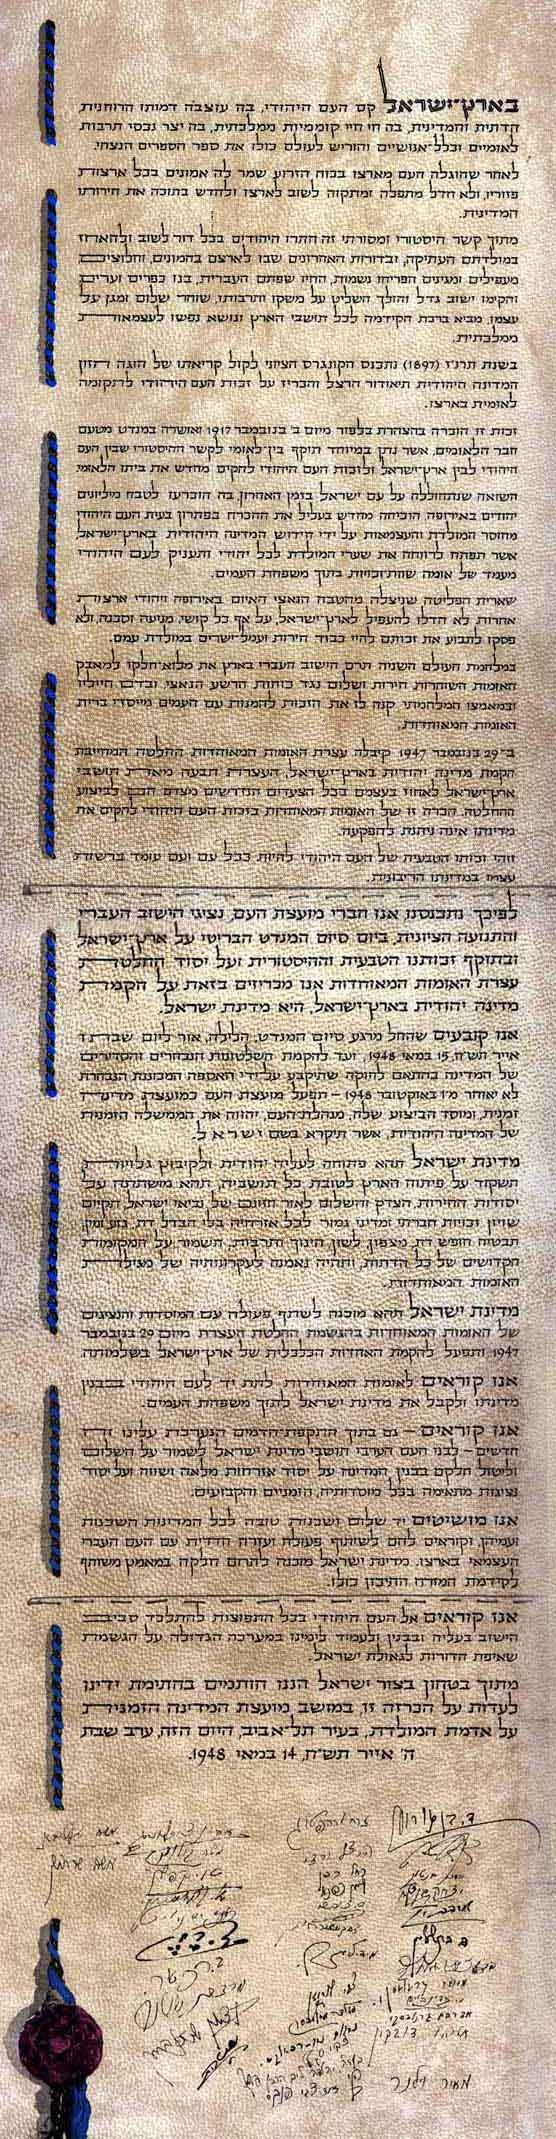 בארץ־ישראל קם העם היהודי, בה עוצבה דמותו הרוחנית,
הדתית והמדינית, בה חי חיי קוממיות ממלכתית, בה יצר נכסי תרבות
לאומיים וכלל־אנושיים והוריש לעולם כולו את ספר הספרים הנצחי.
לאחר שהוגלה העם מארצו בכוח הזרוע שמר לה אמונים בכל ארצות
פזוריו, ולא חדל מתפלה ומתקוה לשוב לארצו ולחדש בתוכה את חירותו
המדינית.
מתוך קשר היסטורי ומסורתי זה חתרו היהודים בכל דור לשוב ולהאחז
במולדתם העתיקה, ובדורות האחרונים שבו לארצם בהמונים, וחלוצים,
מעפילים ומגינים הפריחו נשמות, החיו שפתם העברית, בנו כפרים וערים,
והקימו ישוב גדל והולך השליט על משקו ותרבותו, שוחר שלום ומגן על
עצמו, מביא ברכת הקידמה לכל תושבי הארץ ונושא נפשו לעצמאות
ממלכתית.
בשנת תרנ״ז (1897) נתכנס הקונגרס הציוני לקול קריאתו של הוגה חזון
המדינה היהודית תיאודור הרצל והכריז על זכות העם היהודי לתקומה
לאומית בארצו.
זכות זו הוכרה בהצהרת בלפור מיום ב׳ בנובמבר 1917 ואושרה במנדט מטעם
חבר הלאומים, אשר נתן במיוחד תוקף בין־לאומי לקשר ההיסטורי שבין העם
היהודי לבין ארץ־ישראל ולזכות העם היהודי להקים מחדש את ביתו הלאומי.
השואה שנתחוללה על עם ישראל בזמן האחרון, בה הוכרעו לטבח מיליונים
יהודים באירופה, הוכיחה מחדש בעליל את ההכרח בפתרון בעית העם היהודי
מחוסר המולדת והעצמאות על־ידי חידוש המדינה היהודית בארץ־ישראל,
אשר תפתח לרווחה את שערי המולדת לכל יהודי ותעניק לעם היהודי
מעמד של אומה שוות־זכויות בתוך משפחת העמים.
שארית הפליטה שניצלה מהטבח הנאצי האיום באירופה ויהודי ארצות
אחרות לא חדלו להעפיל לארץ־ישראל, על אף כל קושי, מניעה וסכנה, ולא
פסקו לתבוע את זכותם לחיי כבוד, חירות ועמל־ישרים במולדת עמם.
במלחמת העולם השניה תרם הישוב העברי בארץ את מלוא־חלקו למאבק
האומות השוחרות חירות ושלום נגד כוחות הרשע הנאצי, ובדם חייליו
ובמאמצו המלחמתי קנה לו את הזכות להמנות עם העמים מייסדי ברית
האומות המאוחדות.
ב־29 בנובמבר 1947 קיבלה עצרת האומות המאוחדות החלטה המחייבת
הקמת מדינה יהודית בארץ־ישראל, העצרת תבעה מאת תושבי
ארץ־ישראל לאחוז בעצמם בכל הצעדים הנדרשים מצדם הם לביצוע
ההחלטה. הכרה זו של האומות המאוחדות בזכות העם היהודי להקים את
מדינתו אינה ניתנת להפקעה.
זוהי זכותו הטבעית של העם היהודי להיות ככל עם ועם עומד ברשות
עצמו במדינתו הריבונית.
לפיכך נתכנסנו, אנו חברי מועצת העם, נציגי הישוב העברי
והתנועה הציונית, ביום סיום המנדט הבריטי על ארץ־ישראל
ובתוקף זכותנו הטבעית וההיסטורית ועל יסוד החלטת
עצרת האומות המאוחדות אנו מכריזים בזאת על הקמת
מדינה יהודית בארץ־ישראל, היא מדינת ישראל.
אנו קובעים שהחל מרגע סיום המנדט, הלילה, אור ליום שבת ו׳
אייר תש״ח, 15 במאי 1948, ועד להקמת השלטונות הנבחרים והסדירים
של המדינה בהתאם לחוקה שתיקבע על־ידי האספה המכוננת הנבחרת
לא יאוחר מ־1 באוקטובר 1948 – תפעל מועצת העם כמועצת מדינה
זמנית, ומוסד הביצוע שלה, מנהלת־העם, יהווה את הממשלה הזמנית
של המדינה היהודית, אשר תיקרא בשם ישראל.
מדינת ישראל תהא פתוחה לעליה יהודית ולקיבוץ גלויות,
תשקוד על פיתוח הארץ לטובת כל תושביה, תהא מושתתה על
יסודות החירות, הצדק והשלום לאור חזונם של נביאי ישראל, תקיים
שויון זכויות חברתי ומדיני גמור לכל אזרחיה בלי הבדל דת, גזע ומין,
תבטיח חופש דת, מצפון, לשון, חינוך ותרבות, תשמור על המקומות
הקדושים של כל הדתות, ותהיה נאמנה לעקרונותיה של מגילת
האומות המאוחדות.
מדינת ישראל תהא מוכנה לשתף פעולה עם המוסדות והנציגים
של האומות המאוחדות בהגשמת החלטת העצרת מיום 29 בנובמבר
1947 ותפעל להקמת האחדות הכלכלית של ארץ־ישראל בשלמותה.
אנו קוראים לאומות המאוחדות לתת יד לעם היהודי בבנין
מדינתו ולקבל את מדינת ישראל לתוך משפחת העמים.
אנו קוראים – גם בתוך התקפת־הדמים הנערכת עלינו זה
חדשים – לבני העם הערבי תושבי מדינת ישראל לשמור על השלום
וליטול חלקם בבנין המדינה על יסוד אזרחות מלאה ושווה ועל יסוד
נציגות מתאימה בכל מוסדותיה, הזמניים והקבועים.
אנו מושיטים יד שלום ושכנות טובה לכל המדינות השכנות
ועמיהן, וקוראים להם לשיתוף פעולה ועזרה הדדית עם העם העברי
העצמאי בארצו. מדינת ישראל מוכנה לתרום חלקה במאמץ משותף
לקידמת המזרח התיכון כולו.
אנו קוראים אל העם היהודי בכל התפוצות להתלכד סביב
הישוב בעליה ובבנין ולעמוד לימינו במערכה הגדולה על הגשמת
שאיפת הדורות לגאולת ישראל.
מתוך בטחון בצור ישראל הננו חותמים בחתימת ידינו
לעדות על הכרזה זו, במושב מועצת המדינה הזמנית,
על אדמת המולדת, בעיר תל־אביב, היום הזה, ערב שבת,
ה׳ אייר תש״ח, 14 במאי 1948.
ד. בן גוריון
מאיר וילנר